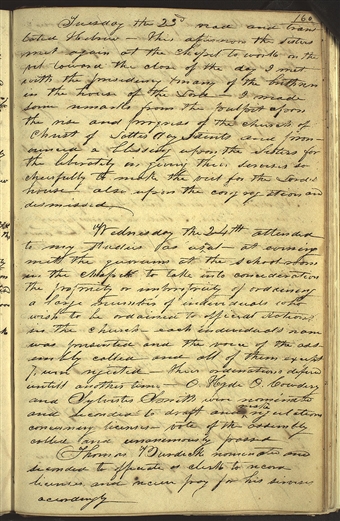 160
Tuesday the 23d read and tran
lated Hebrew — This afternoon the sisters
met again at the Chapel to work on the
veil toward the close of the day I met
with the presidency & many of the brethren
in the house of the Lord — I made
some remarks from the pulpit upon
the rise and progress of the church of
Christ of Latter day Saints and pron-
ounced a blessing upon the Sisters for
the liberality in giving their servises so
cheerfully to make the veil for the Lord's
house also upon the congregation and
dismissed
Wednesday the 24th attended
to my studies as usal — at evening
met the quorums at the school room
in the chapel to take into concideration
the propriety or impropriety of ordaining
a large number of individuals who
wish to be ordained to official stations
in the church — each individuals name
was presented and the voice of the ass
embly called and all of them except
7 were rejected — their ordinations defered
untill another time — O. Hyde O. Cowdery
and Sylvester Smith were nominated
and seconded to draft and make regulations
concerning licenses — vote of the assembly
called and unanimously passed
Thomas Burdick nominated and
seconded to officiate as clerk to record
licenses, and receive pay for his servises
accordingly